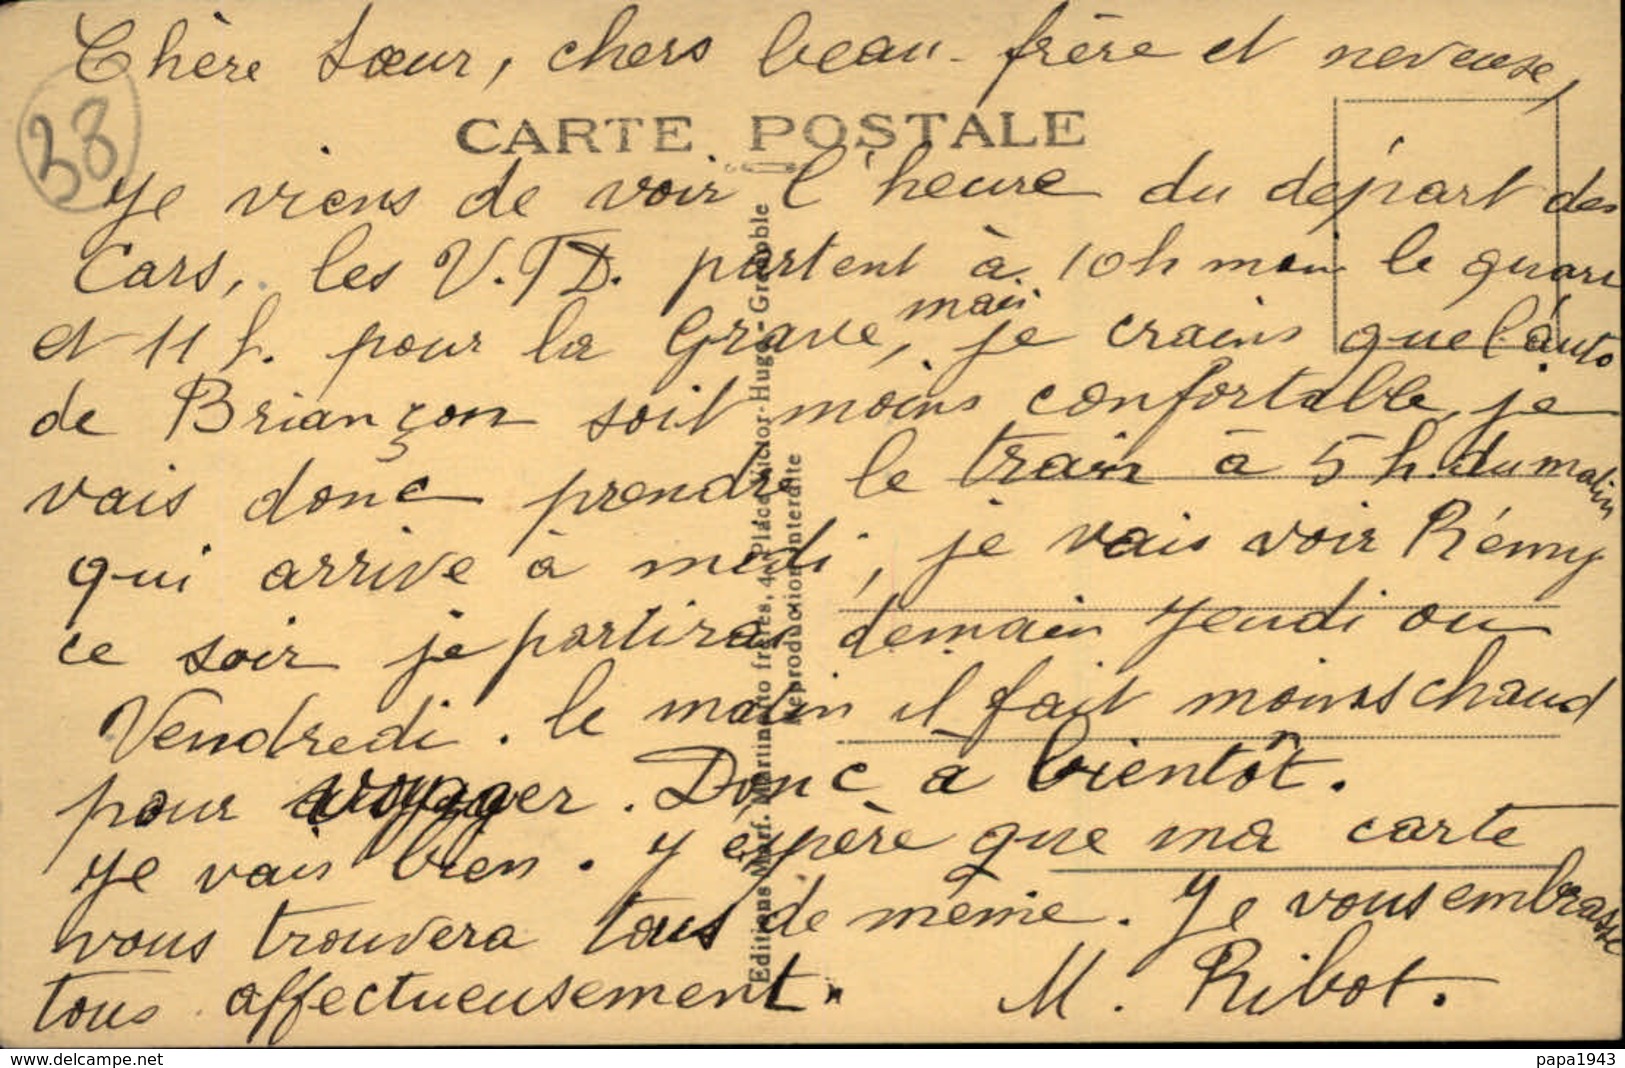 Chère Sœur, chers beau-frère et neveuse,
38
CARTE POSTALE
Je viens de voir l'heure du départ des
Cars, les V.F.D. partent à 10h moin le quart
et 11 h. pour la Grave, mais je crains que l'auto
de Briançon soit moins confortable, je
vais donc prendre le train à 5 h. du matin
qui arrive à midi, je vais voir Rémy
ce soir je partirai demain Jeudi ou
Vendredi. le matin il fait moins chaud
pour voyager. Donc à bientôt.
Je vais bien. J'espère que ma carte
vous trouvera tous de même. Je vous embrasse
tous affectueusement.
M. Ribot.
Editions Mart. Martinotto frères, 4, Place Victor-Hugo - Grenoble
Reproduction interdite
delcampe.net
papa1943